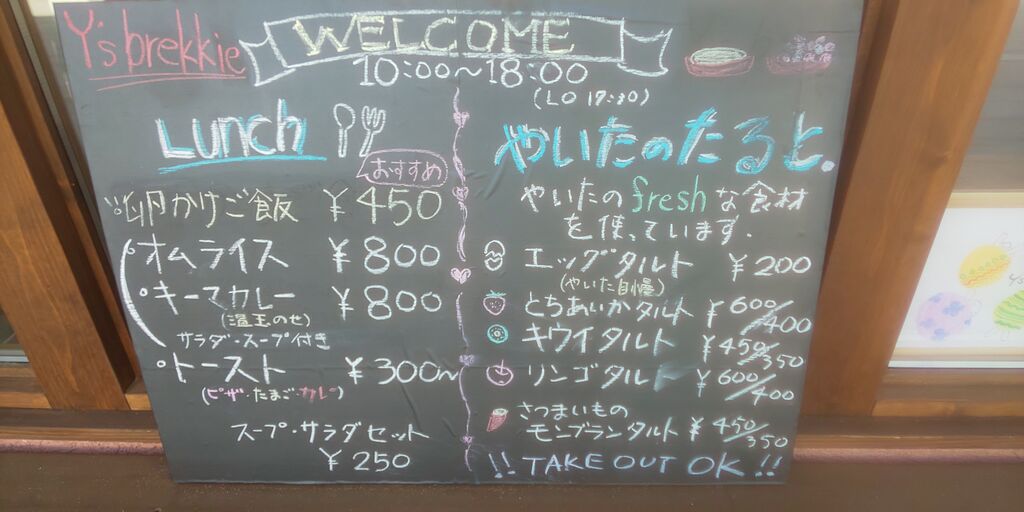 Y's brekkie
WELCOME
10:00~18:00
(LO 17:30)
Lunch
おすすめ
卵かけご飯 ¥450
オムライス ¥800
キーマカレー ¥800
(温玉のせ)
サラダ・スープ付き
トースト ¥300~
(ピザ・たまご・カレー)
スープ・サラダセット
¥250
やいたのたると。
やいたのfreshな食材
を使っています.
エッグタルト ¥200
(やいた自慢)
とちあいかタルト ¥600/400
キウイタルト ¥450/350
リンゴタルト ¥600/400
さつまいもの
モンブランタルト ¥450/350
!! TAKE OUT OK !!